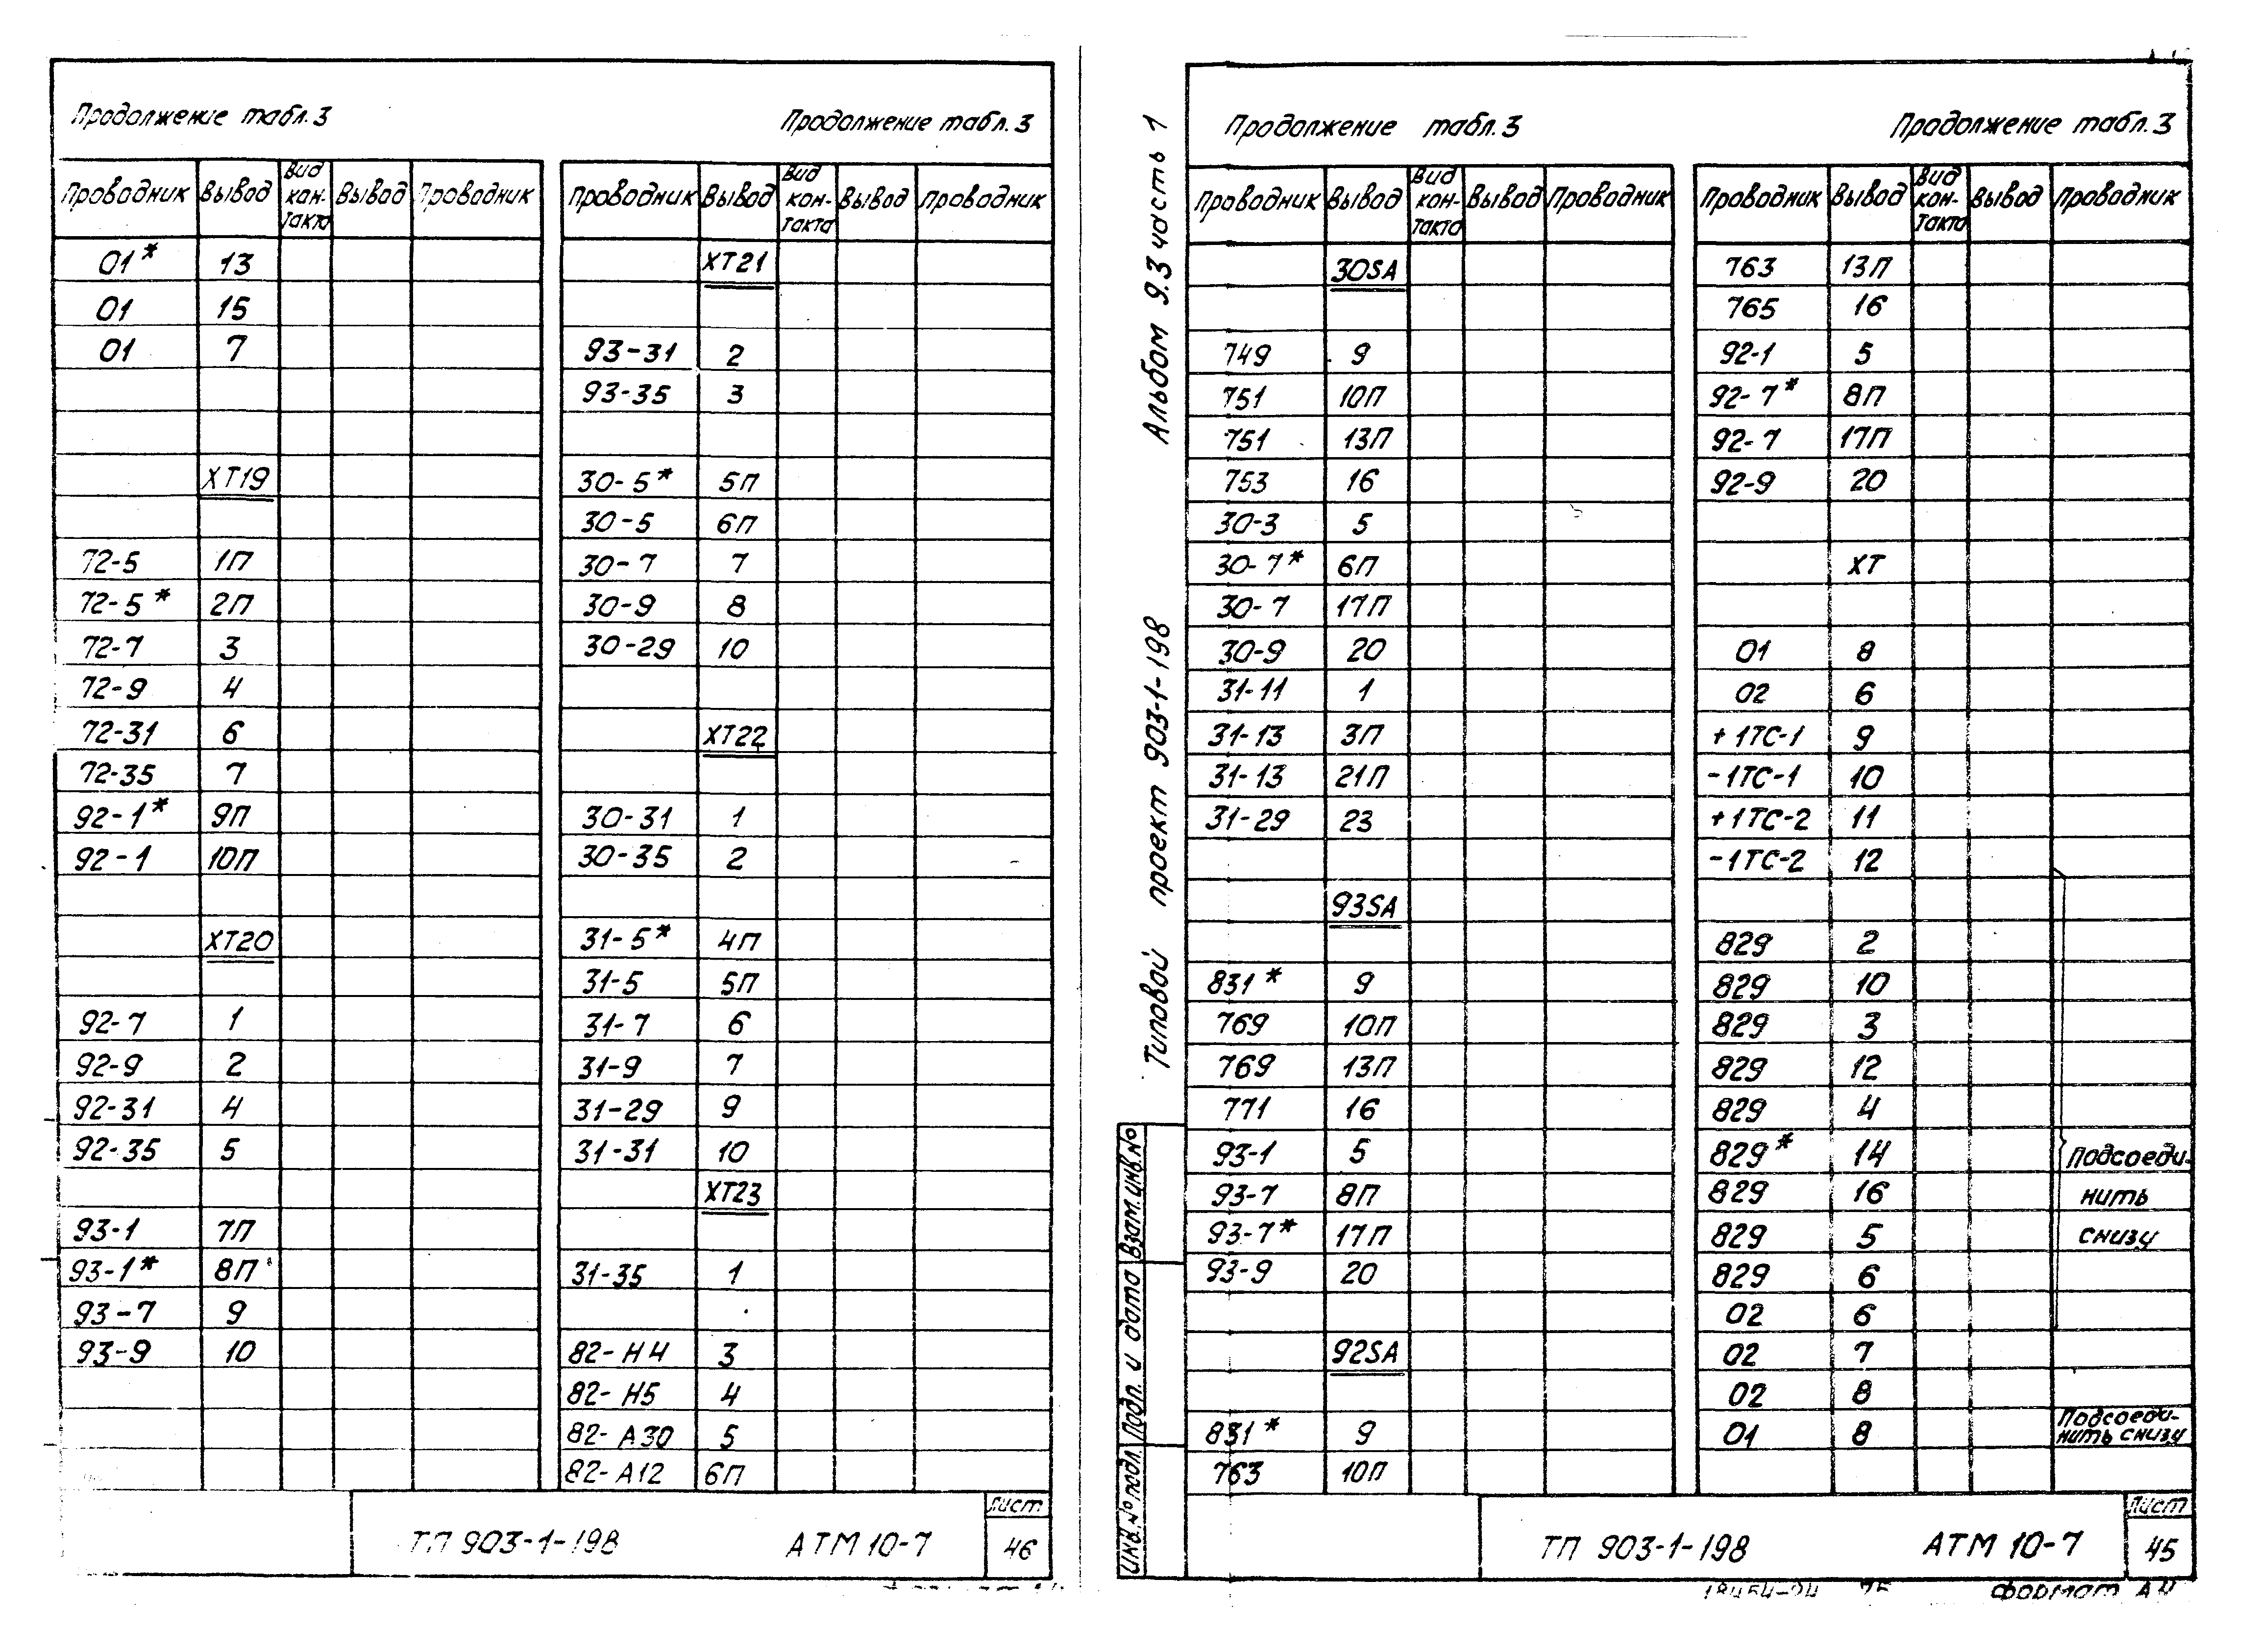 Продолжение табл. 3
Проводник Вывод Вид кон-такта Вывод Проводник
01* 13
01 15
01 7
XT19
72-5 1П
72-5* 2П
72-7 3
72-9 4
72-31 6
72-35 7
92-1* 9П
92-1 10П
XT20
92-7 1
92-9 2
92-31 4
92-35 5
93-1 7П
93-1* 8П
93-7 9
93-9 10
Продолжение табл. 3
Проводник Вывод Вид кон-такта Вывод Проводник
XT21
93-31 2
93-35 3
30-5* 5П
30-5 6П
30-7 7
30-9 8
30-29 10
XT22
30-31 1
30-35 2
31-5* 4П
31-5 5П
31-7 6
31-9 7
31-29 9
31-31 10
XT23
31-35 1
82-Н4 3
82-Н5 4
82-А30 5
82-А12 6П
ТП 903-1-198 АТМ 10-7
Лист
46
Альбом 9.3 часть 1
Типовой проект 903-1-198
Взам. инв. №
Подп. и дата
Инв. № подл.
Продолжение табл. 3
Проводник Вывод Вид кон-такта Вывод Проводник
30SA
749 9
751 10П
751 13П
753 16
30-3 5
30-7* 6П
30-7 17П
30-9 20
31-11 1
31-13 3П
31-13 21П
31-29 23
93SA
831* 9
769 10П
769 13П
771 16
93-1 5
93-7 8П
93-7* 17П
93-9 20
92SA
831* 9
763 10П
Продолжение табл. 3
Проводник Вывод Вид кон-такта Вывод Проводник
763 13П
765 16
92-1 5
92-7* 8П
92-7 17П
92-9 20
XT
01 8
02 6
+1ТС-1 9
-1ТС-1 10
+1ТС-2 11
-1ТС-2 12
829 2
829 10
829 3
829 12
829 4
829* 14 Подсоеди-
829 16 нить
829 5 снизу
829 6
02 6
02 7
02 8
01 8 Подсоеди-
нить снизу
ТП 903-1-198 АТМ 10-7
Лист
45
Формат А4